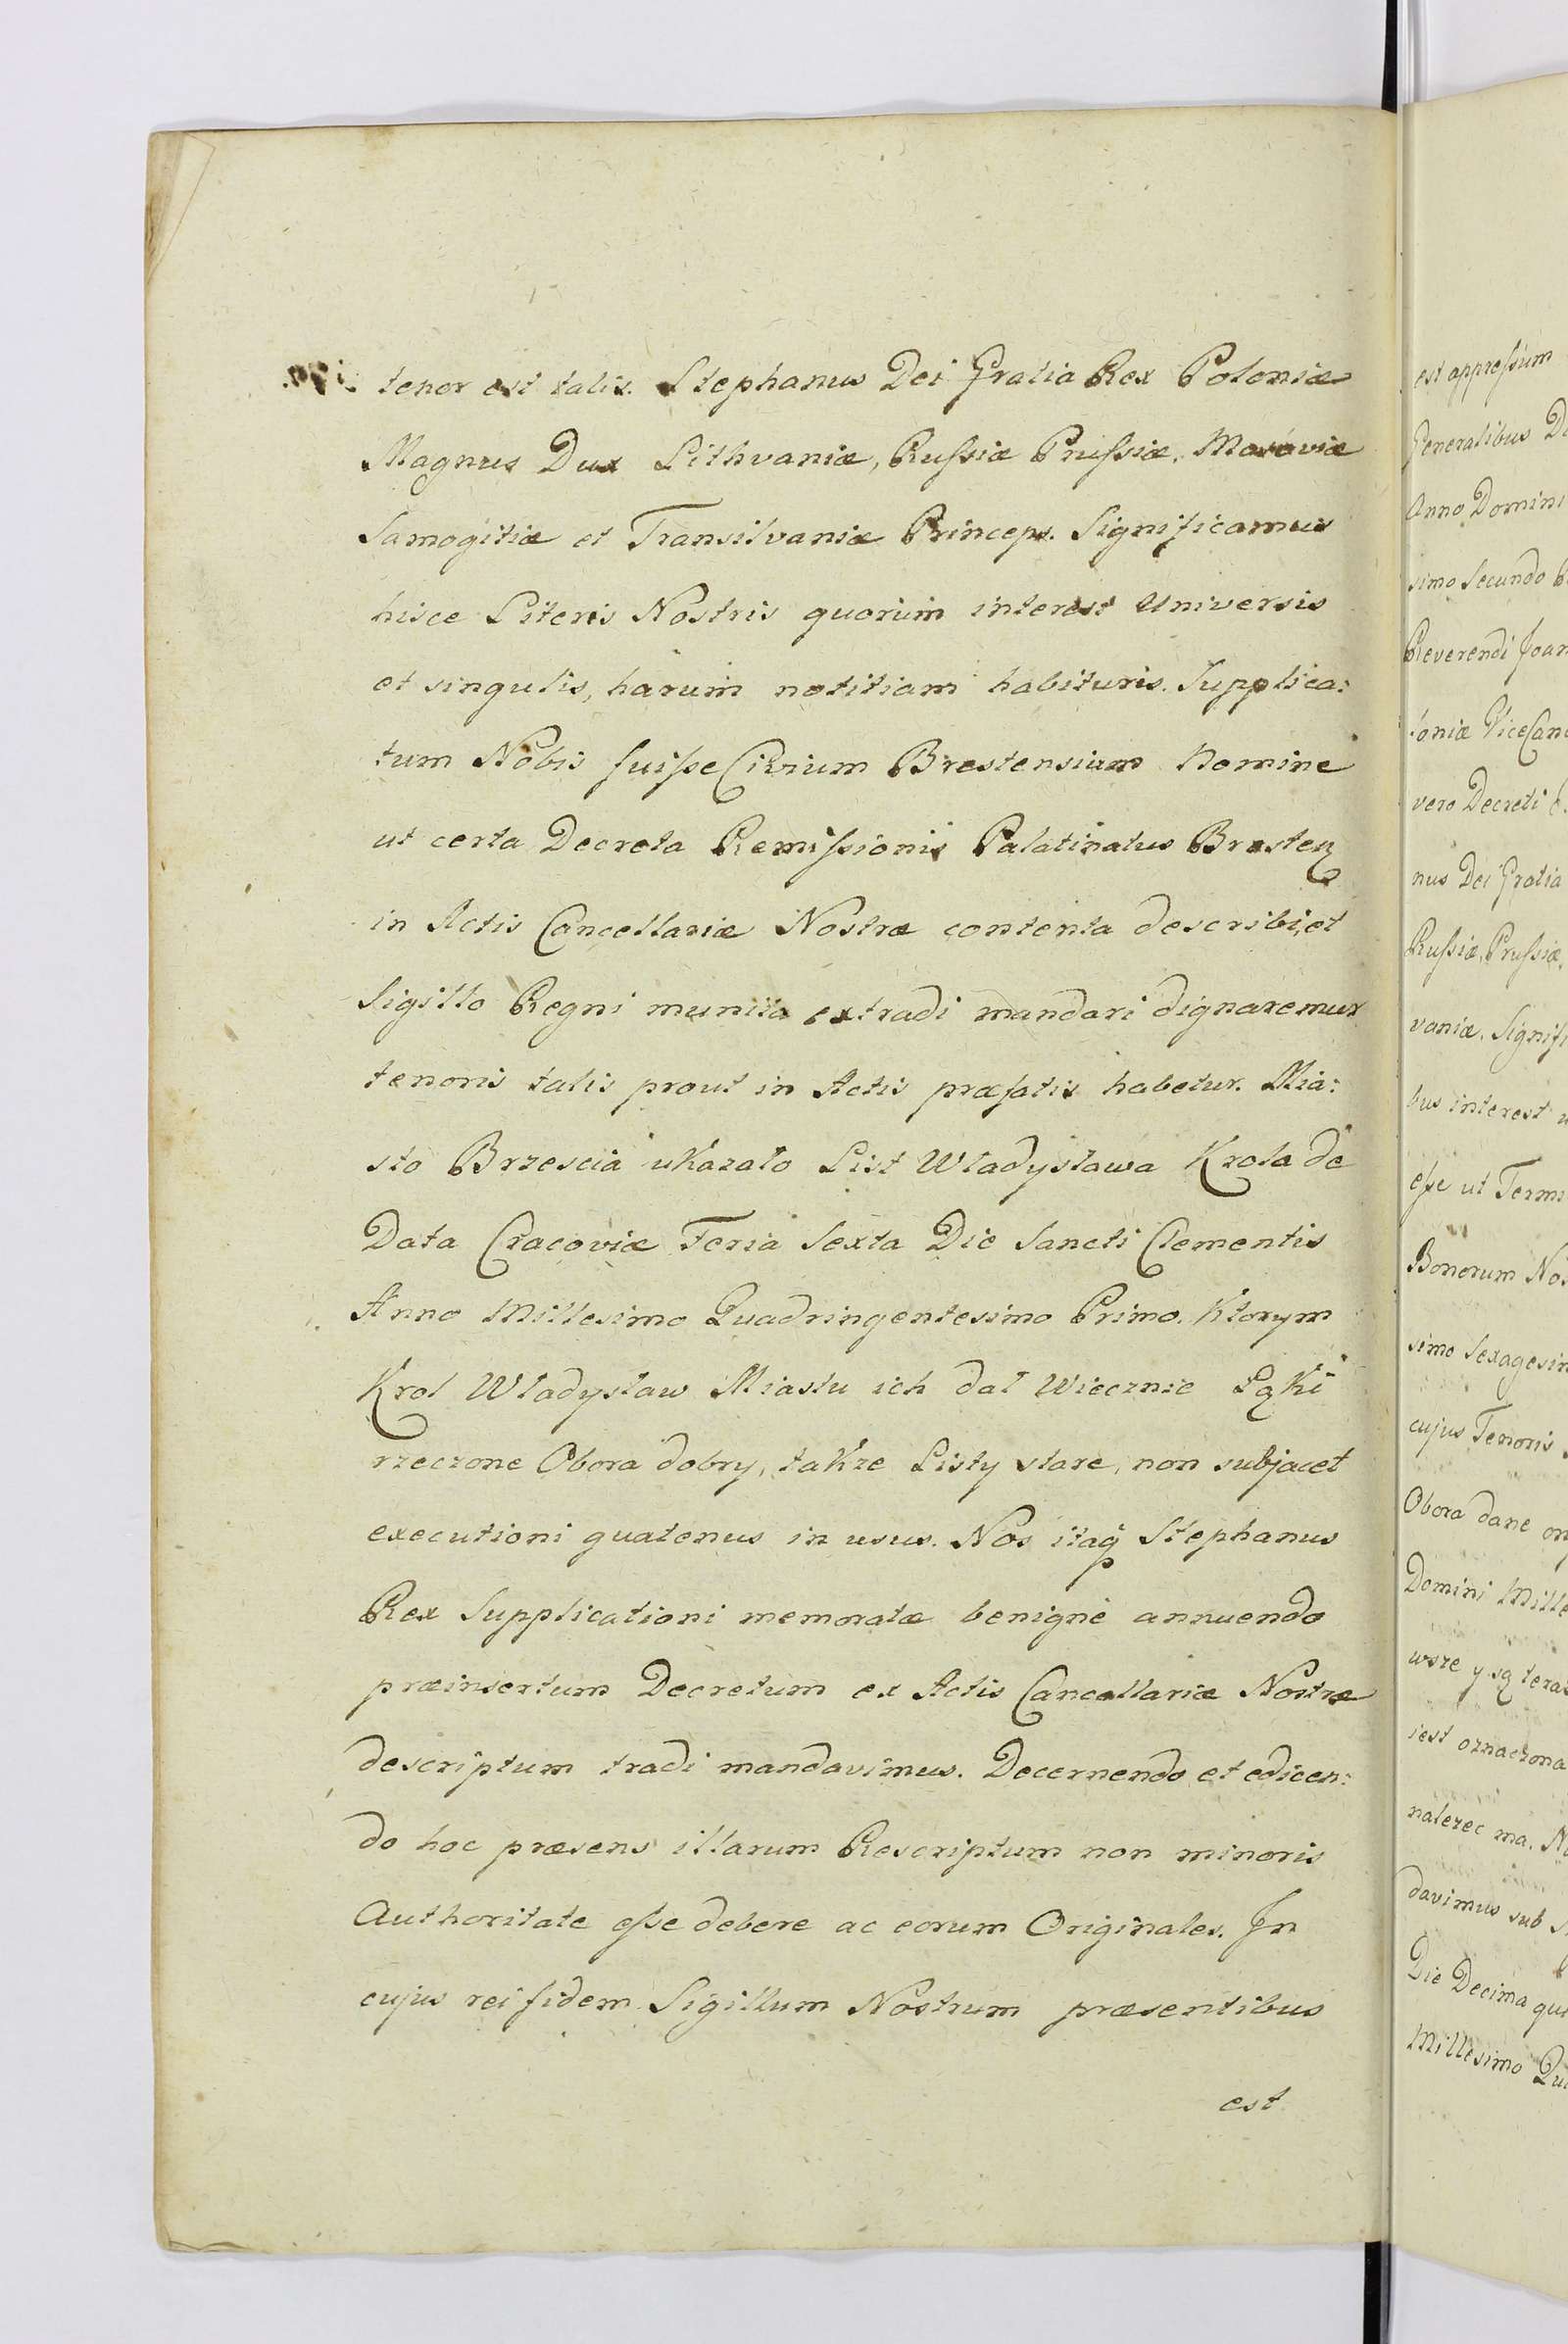 tenor est talis. Stephanus Dei Gratia Rex Poloniæ
Magnus Dux Lithvaniæ, Rußiæ Prußiæ, Masoviæ
Samogitiæ et Transilvaniæ Princeps. Significamus
hisce Literis Nostris quorum interest Universis
et singulis, harum notitiam habituris. Supplica:
tum Nobis fuiße Civium Brestensium Nomine
ut certa Decreta Remißionis Palatinatus Bresteñ
in Actis Cancellariæ Nostræ contenta describi, et
Sigillo Regni munita extradi mandari dignaremur
tenoris talis prout in Actis præfatis habetur. Mia:
sto Brzescia ukazało List Władysława Krola de
Data Cracoviæ Feria Sexta Die Sancti Clementis
Anno Millesimo Quadringentesimo Primo. Ktorym
Krol Władysław Miastu ich dał Wiecznie Łąki
rzeczone Obora dobry, takze Listy stare, non subjacet
executioni quatenus in usus. Nos itaq̃ Stephanus
Rex Supplicationi memoratæ benignè annuendo
præinsertum Decretum ex Actis Cancellariæ Nostræ
descriptum tradi mandavimus. Decernendo et edicen:
do hoc præsens illarum Rescriptum non minoris
Authoritate eße debere ac eorum Originales. In
cujus rei fidem Sigillum Nostrum præsentibus
est
est appreßum
Generalibus
Anno Domini
simo Secundo
Reverendi
vero Decreti
nus Dei Gratia
Rußiæ, Prußiæ,
vaniæ.
bus interest
eße ut
Bonorum
simo
cujus Tenoris
Obora dane
Domini
wsze y są
iest oznaczona
nalezec ma.
davimus sub
Die Decima
Millesimo